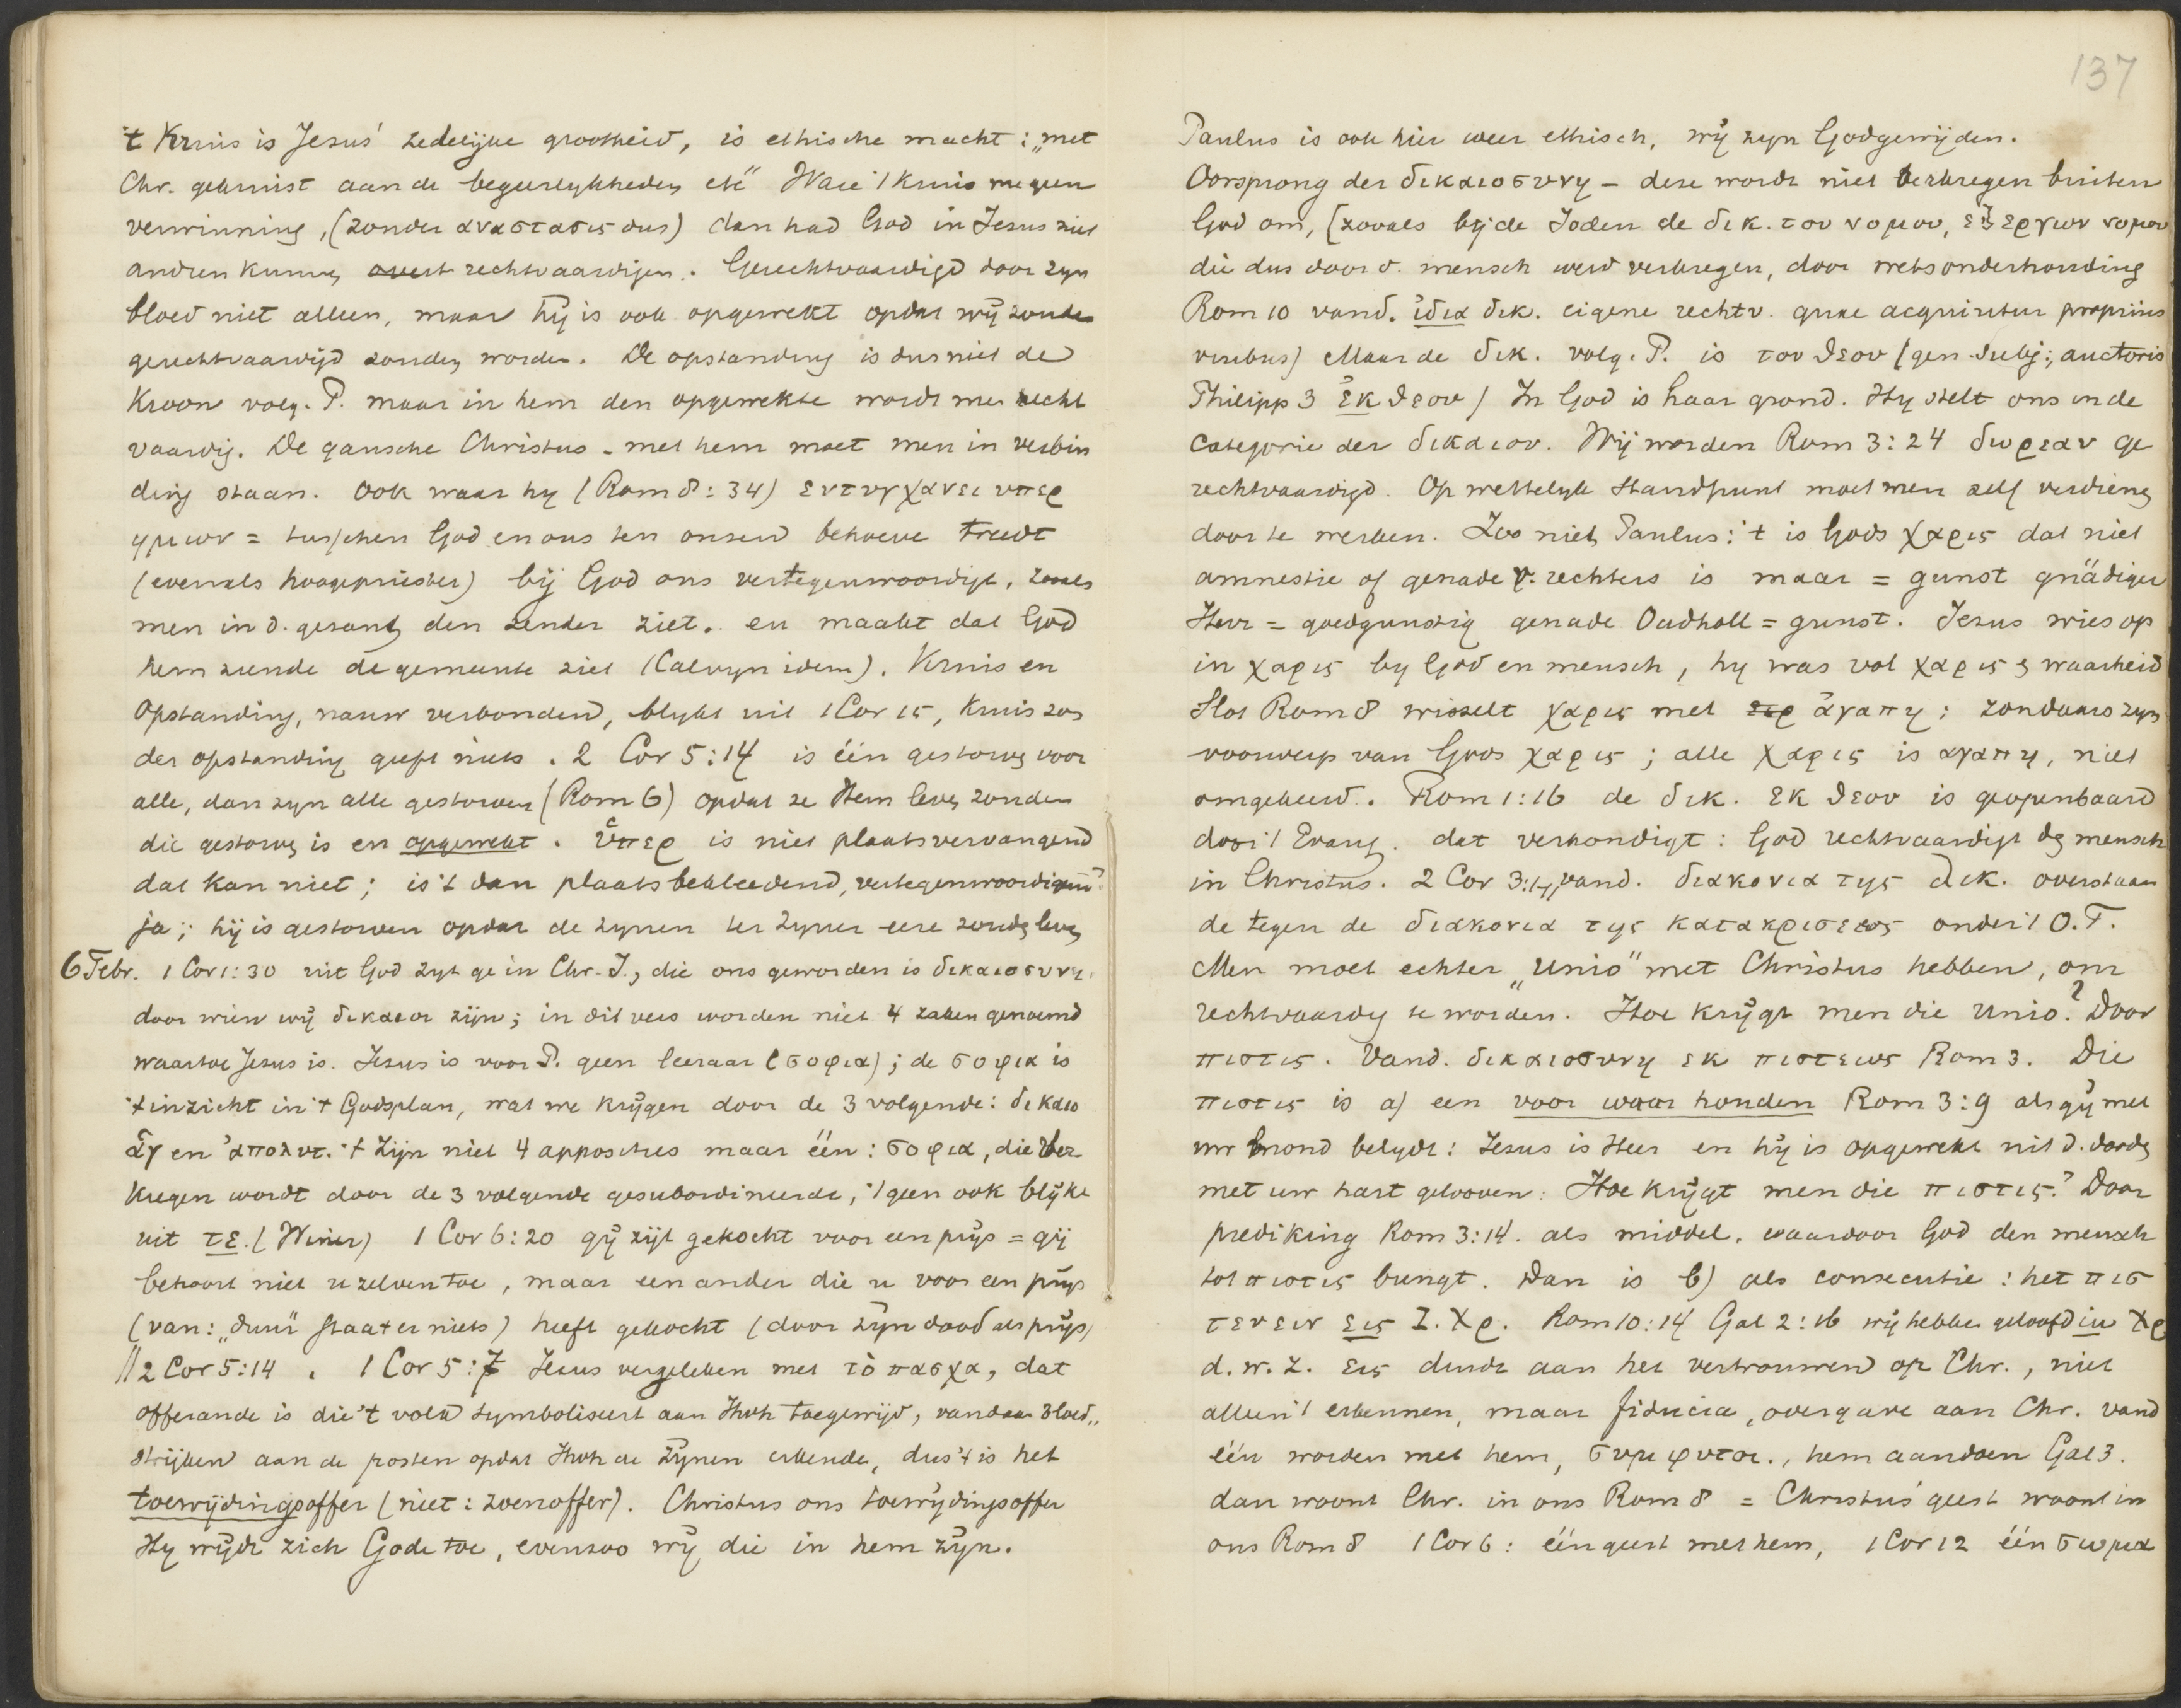 't Kruis is Jesus' zedelijke grootheid, is ethische macht: „met
Chr. gekruist aan de begeerlykheden etc" Ware 't kruis me geen
verwinning, (zonder αναστασις dus) dan had God in Jesus niet
andren kunnen rechtvaardigen. Gerechtvaardigd door zyn
bloed niet alleen, maar hij is ook opgewekt opdat wij zonder
gerechtvaardigd zouden worden. De opstanding is dus niet de
Kroon volg. P. maar in hem den opgewekte wordt men recht
vaardig. De gansche Christus - met hem moet men in verbin
ding staan. Ook waar hy (Rom 8:34) εντυγχανει υπερ
ημων = tusschen God en ons ten onzend behoeve treedt
(evenals hoogepriester) bij God ons vertegenwoordigt, zooals
men in d. gezant den zender ziet. en maakt dat God
hem ziende de gemeente ziet (Calvyn idem). Kruis en
Opstanding, nauw verbonden, blykt uit 1 Cor 15, Kruis zon
der opstanding geeft niets. 2 Cor 5:14 is één gestorven voor
alle, dan zyn alle gestorven (Rom 6) opdat ze Hem leven zouden
die gestorven is en opgewekt. ὑπερ is niet plaatsvervangend
dat kan niet; is 't dan plaatsbekleedend, vertegenwoordigend?
ja; hij is gestorven opdat de zynen ter zyner eere zouden leven
6 Febr. 1 Cor 1:30 uit God zyt ge in Chr. J., die ons geworden is δικαιοσυνη.
door wien wij δικαιοι zijn; in dit vers worden niet 4 zaken genoemd
waartoe Jesus is. Jesus is voor P. geen leeraar (σοφια); de σοφια is
't inzicht in 't Godsplan, wat we krijgen door de 3 volgende: δικαιο
ἁγ en ἀπολυτ. 't Zijn niet 4 apposities maar één: σοφια, die ver
kregen wordt door de 3 volgende gesubordineerde, 't geen ook blijke
uit τε. (Winer) 1 Cor 6:20 gij zijt gekocht voor een prijs = gij
behoort niet u zelven toe, maar een ander die u voor een prijs
(van: „duur" staat er niets) heeft gekocht (door zijn dood als prijs)
// 2 Cor 5:14. 1 Cor 5:7 Jezus vergeleken met τὸ πασχα, dat
offerande is die 't volk symboliseert aan Jhvh toegewijd, vandaar bloed„
strijken aan de posten opdat Jhvh de zijnen erkende, dus 't is het
toewijdingsoffer (niet: zoenoffer). Christus ons toewydingsoffer
Hy wijdt zich Gode toe, evenzoo wij die in hem zyn.
137
Paulus is ook hier weer ethisch, wij zyn Godgewijden.
Oorsprong der δικαιοσυνη - deze wordt niet verkregen buiten
God om, [zooals bij de Joden de δικ. του νομου, ἐξ εργων νομου
die dus door d. mensch werd verkregen, door wetsonderhouding
Rom 10 vand. ἰδια δικ. eigene rechtv. quae acquiritur propriis
viribus) Maar de δικ. volg. P. is του θεου (gen. subj:, auctoris
Philipp 3 ἐκ θεου) In God is haar grond. Hy stelt ons in de
categorie der δικαιοι. Wij worden Rom 3:24 δωρεαν ge
rechtvaardigd. Op wettelyk standpunt moet men zelf verdienen
door te werken. Zoo niet Paulus: 't is Gods χαρις dat niet
amnestie of genade v. rechters is maar = gunst gnädiger
Herr = goedgunstig genade Oudholl = gunst. Jezus wies op
in χαρις by God en mensch, hy was vol χαρις en waarheid
Slot Rom 8 wisselt χαρις met ἀγαπη: zondaars zyn
voorwerp van Gods χαρις; alle χαρις is αγαπη, niet
omgekeerd. Rom 1:16 de δικ. εκ θεου is geopenbaard
door 't Evang. dat verkondigt: God rechtvaardigt den mensch
in Christus. 2 Cor 3:14, vand. διακονια της δικ. overstaan
de tegen de διακονια της κατακρισεως onder 't O.T.
Men moet echter „Unio" met Christus hebben, om
rechtvaardig te worden. Hoe krijgt men die unio? Door
πιστις. Vand. δικαιοσυνη εκ πιστεως Rom 3. Die
πιστις is a) een voor waar houden Rom 3:9 als gij met
uw mond belydt: Jezus is Heer en hij is opgewekt uit d. dooden
met uw hart gelooven: Hoe krijgt men die πιστις? Door
prediking Rom 3:14. als middel, waardoor God den mensch
tot πιστις brengt. Dan is b) als consecutie: het πισ
τευειν εις Ι. Χρ. Rom 10:14 Gal 2:16 wij hebben geloofd in Χρ
d.w.z. εις duidt aan het vertrouwen op Chr., niet
alleen 't erkennen, maar fiducia, overgave aan Chr. vand
één worden met hem, συμφυτοι., hem aandoen Gal 3.
dan woont Chr. in ons Rom 8 = Christus' geest woont in
ons Rom 8 1 Cor 6: één geest met hem, 1 Cor 12 één σωμα